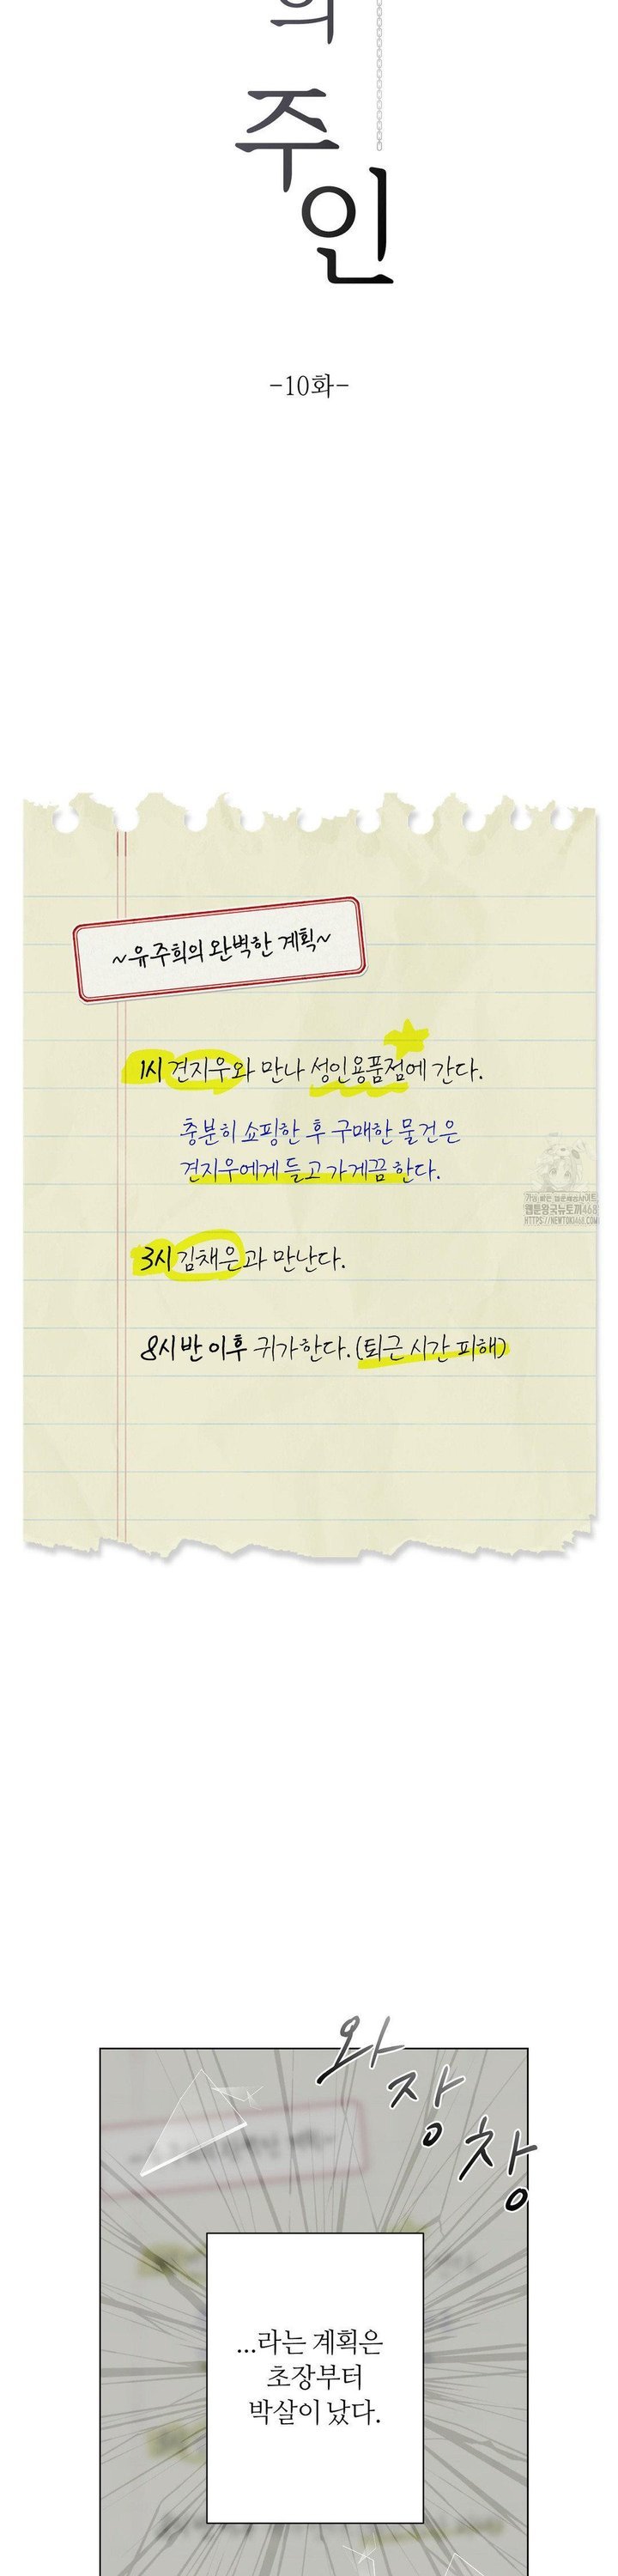 의
주
인
-10화-
~유주희의 완벽한 계획~
1시 견지우와 만나 성인용품점에 간다.
충분히 쇼핑한 후 구매한 물건은
견지우에게 들고 가게끔 한다.
가장 빠른 웹툰해적사이트
웹툰왕국뉴토끼468
HTTPS://NEWTOKI468.COM
3시 김채은과 만난다.
8시 반 이후 귀가한다. (퇴근 시간 피해)
와
장
창
...라는 계획은
초장부터
박살이 났다.